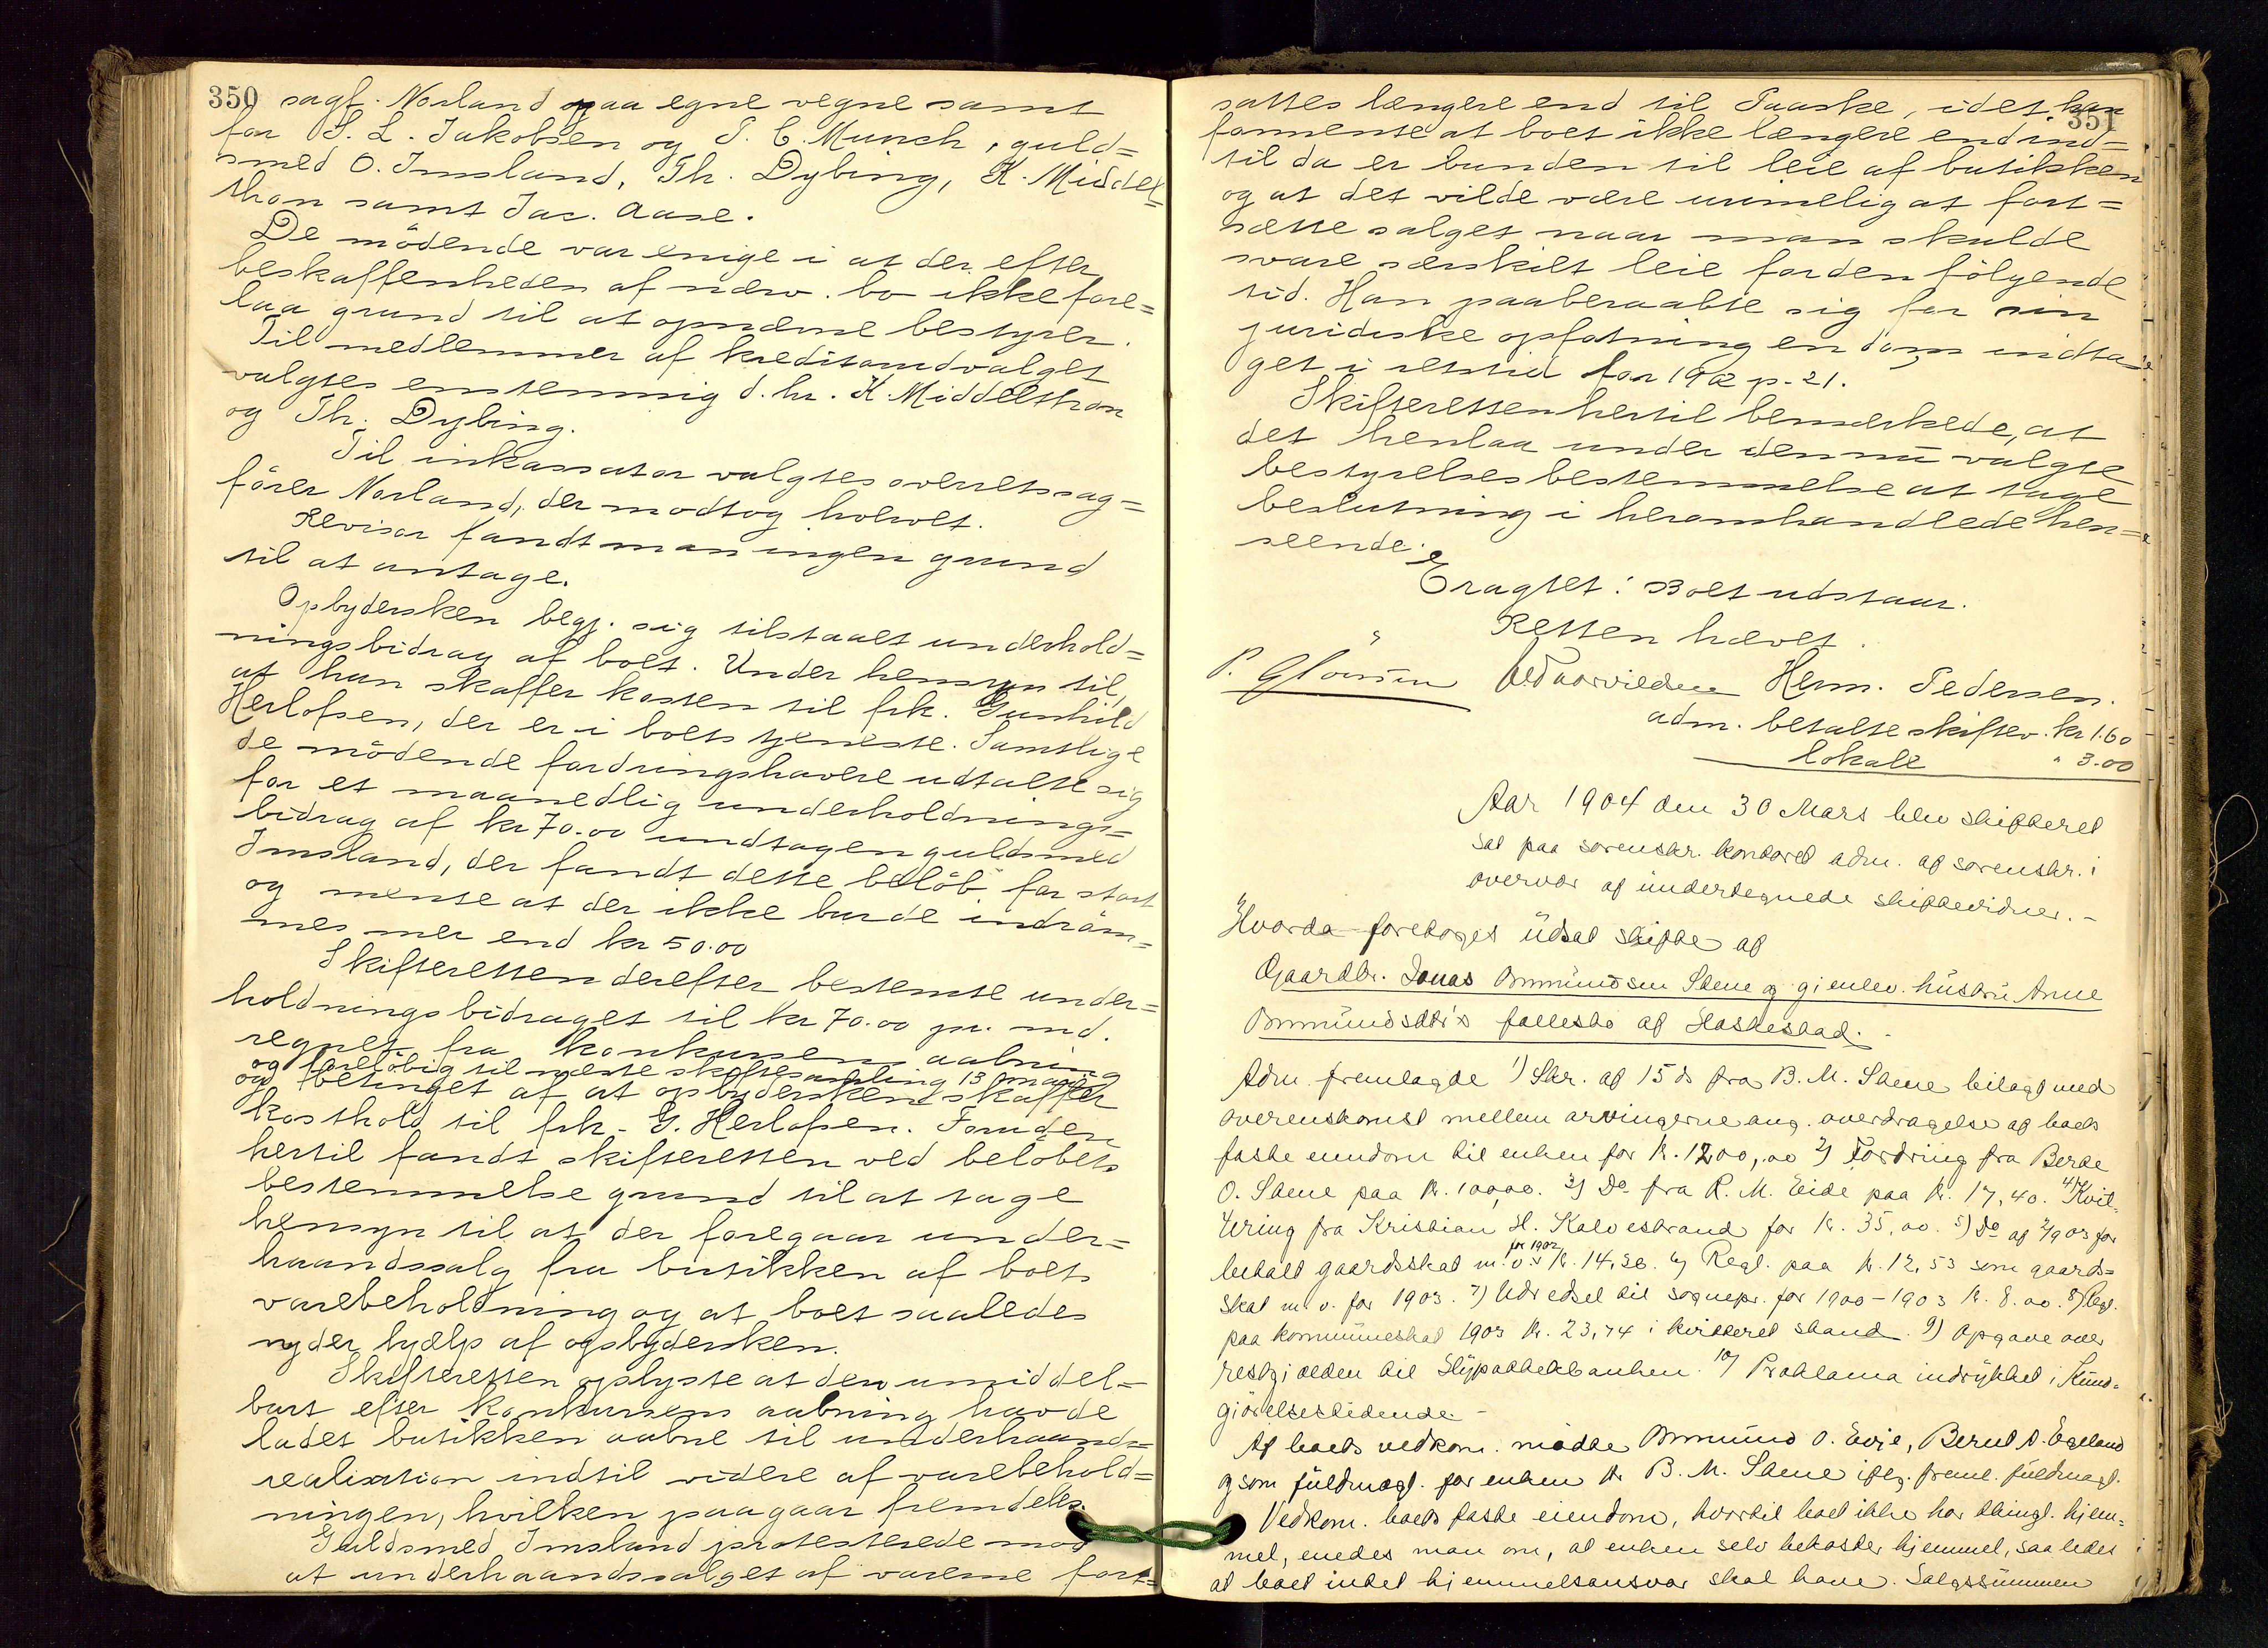 350
sagf. Norland paa egne vegne samt
for S. L. Jakobsen og P. C. Munch, guld=
smed O. Imsland, Th. Dybing, K. Middel=
thon samt Jac. Aase.
De mödende var enige i at der efter
beskaffenheden af nærv. bo ikke fore=
laa grund til at opnævne bestyrer.
Til medlemmer af kreditorudvalget
valgtes enstemmig d. hr. K. Middelthon
og Th. Dybing.
Til inkassator valgtes overretssag=
förer Norland, der modtog hvervet.
Revisor fandt man ingen grund
til at antage.
Opbydersken begj. sig tilstaaet underhold=
ningsbidrag af boet. Under hensyn til,
at hun skaffer kosten til frk. Gunhild
Herlofsen, der er i boets tjeneste. Samtlige
de mödende fordringshavere udtalte sig
for et maanedlig underholdnings=
bidrag af kr 70.00 undtagen guldsmed
Imsland, der fandt dette belöb for stort
og mente at der ikke burde indröm=
mes mer end kr 50.00
Skifteretten derefter bestemte under=
holdningsbidraget til kr 70.00 pr. md.
regnet fra konkursens aabning
og foreløbig til næste skiftesamling 13 mai
og betinget af at opbydersken skaffer
kosthold til frk. G. Herlofsen. Foruden
hertil fandt skifteretten ved belöbets
bestemmelse grund til at tage
hensyn til at der foregaar under=
haandssalg fra butikken af boets
varebeholdning og at boet saaledes
nyder hjælp af opbydersken.
Skifteretten oplyste at den umiddel=
bart efter konkursens aabning havde
ladet butikken aabne til underhaands=
realisation indtil videre af varebehold=
ningen, hvilken paagaar fremdeles.
Guldsmed Imsland protesterede mod
at underhaandssalget af varerne fort=
351
sattes længere end til Paaske, idet han
formente at boet ikke længere end ind=
til da er bunden til leie af butikken
og at det vilde være urimelig at fort=
sætte salget naar man skulde
svare særskilt leie for den fölgende
tid. Han paaberaabte sig for sin
juridiske opfatning en dom indta=
get i retstid for 1902 p. 21.
Skifteretten hertil bemærkede, at
det henlaa under den nu valgte
bestyrelses bestemmelse at tage
beslutning i heromhandlede hen=
seende.
Eragtet: Boet udstaar.
Retten hævet.
Herm. Pedersen.
adm. betalte skiftev. kr 1.60
lokale " 3.00
Aar 1904 den 30 Mars blev skifteret
sat paa sorenskr. kontoret adm. af sorenskr. i
overvær af undertegnede skiftevidner. -
Hvorda foretoges üdsat skifte af
Gaardbr. Jonas Ommündsen Stene og gjenlev. hüstrü Anne
Ommündsdtr's fællesbo af Haskestad. -
Adm. fremlagde 1) Skr. af 15 ds fra B. M. Stene bilagt med
overenskomst mellem arvingerne ang. overdragelse af boets
faste eiendom til enken for Kr. 1200,00 2) Fordring fra Berte
O. Stene paa Kr. 100,00. 3) Do fra R. M. Eide paa Kr. 17,40. 4) Kvit=
tering fra Kristian H. Kalvestrand for Kr. 35,00. 5) Do af 2/9 03 for
betalt gaardsskat m. v. for 1902 Kr. 14,36. 6) Regl. paa Kr. 12,53 som gaards=
skat m. v. for 1903. 7) Udredsel til sognepr. for 1900-1903 Kr. 8.00. 8) Regl.
paa kommüneskat 1903 Kr. 23,74 i kvitteret stand. 9) Opgave over
restgjælden til Hypothekbanken. 10) Proklama indrykket i Künd=
gjørelsestidende. -
Af boets vedkom. mødte Ommünd O. Evje, Bernt A. Egeland
og som füldmægt. for enken Hr. B. M. Stene iflg. freml. füldmagt.
Vedkom. boets faste eiendom, hvortil boet ikke har thingl. hjem=
mel, enedes man om, at enken selv bekoster hjemmel, saaledes
at boet intet hjemmelsansvar skal have. Salgssümmen